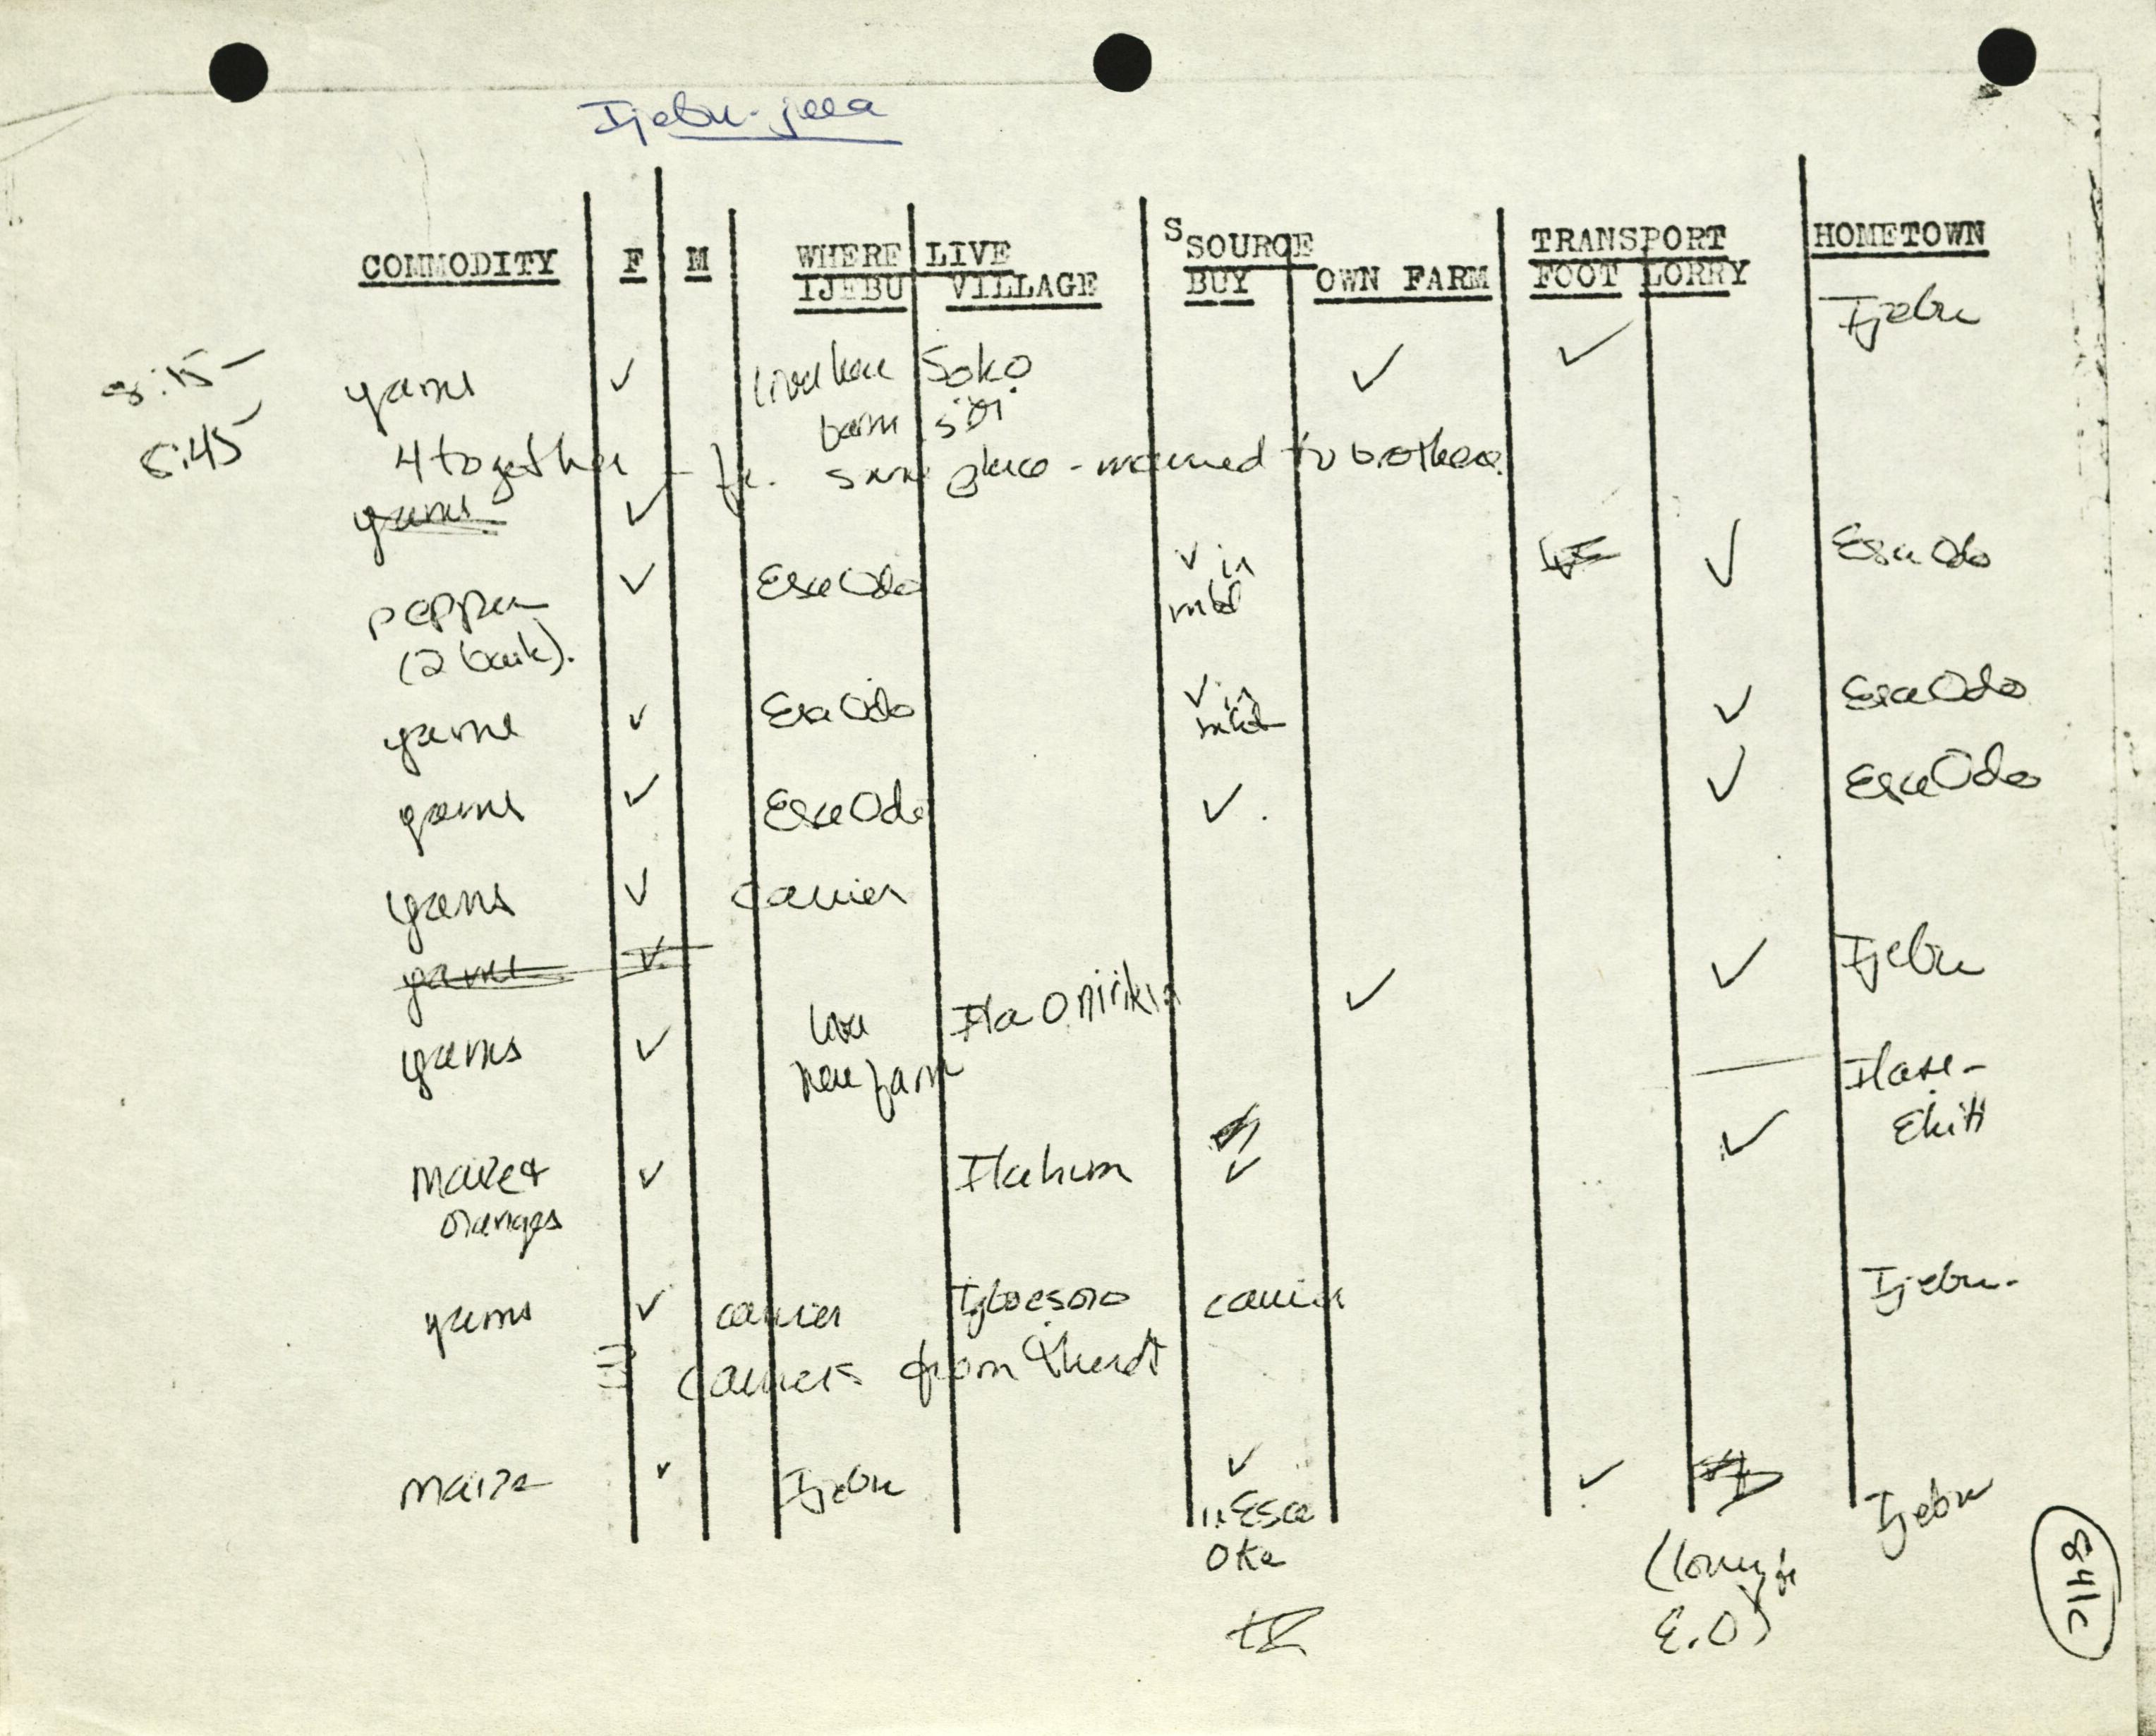 Ijebu-jesa
COMMODITY F M WHERE LIVE IJEBU VILLAGE SSOURCE BUY OWN FARM TRANSPORT FOOT LORRY HOMETOWN
8:15-
8:45
yams ✓ Soko ✓ ✓ Ijebu
4 together - fr. same place - married to brothers
yams ✓
pepper ✓ Esa Odo ✓ in mkt ✓ Esa Odo
yams ✓ Esa Odo ✓ in mkt ✓ Esa Odo
yams ✓ Esa Odo ✓ ✓ Esa Odo
yams ✓ carrier
yams ✓
yams ✓ live Ila Onirikin ✓ ✓ Ijebu
farm
maize + ✓ ✓ ✓ Ilase-
oranges Ekiti
yams ✓ carrier Igboesoro carrier Ijebu-
carriers from
maize ✓ Ijebu ✓ ✓ Ijebu
in Esa
Oke
(lorry fr
E.O)
841c